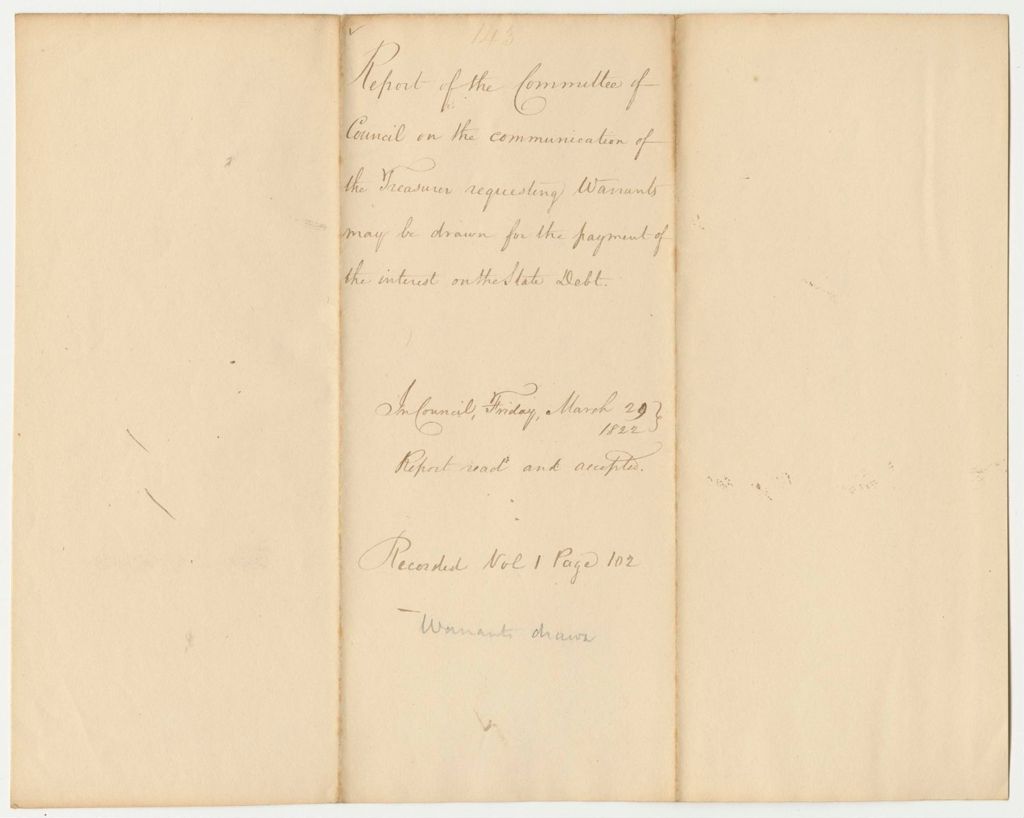 143
Report of the Committee of
Council on the communication of
the Treasurer requesting Warrants
may be drawn for the payment of
the interest on the State Debt.
In Council, Friday, March 29
1822
Report read and accepted.
Recorded Vol 1 Page 102
Warrants drawn